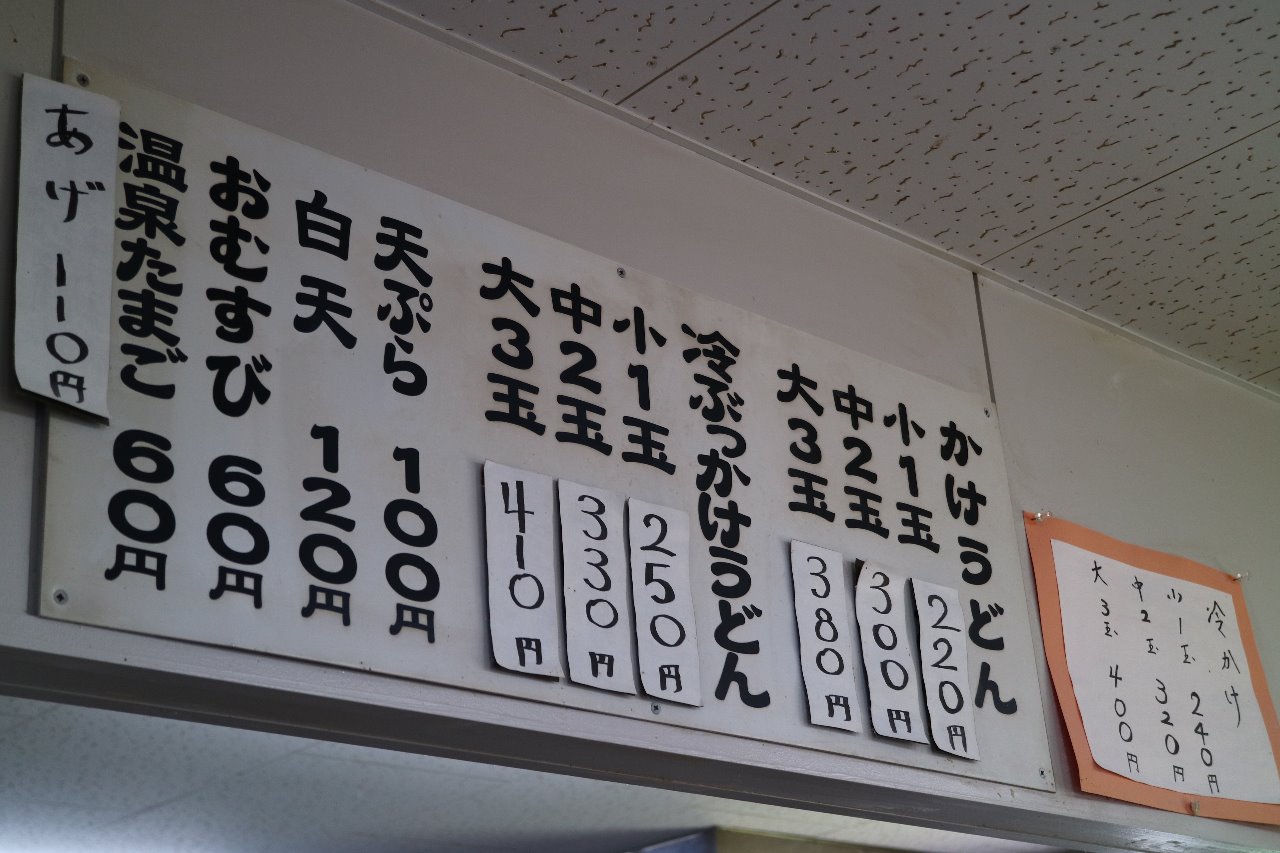 冷かけ
小1玉 240円
中2玉 320円
大3玉 400円
かけうどん
小1玉 220円
中2玉 300円
大3玉 380円
冷ぶっかけうどん
小1玉 250円
中2玉 330円
大3玉 410円
天ぷら 100円
白天 120円
おむすび 60円
温泉たまご 60円
あげ 110円